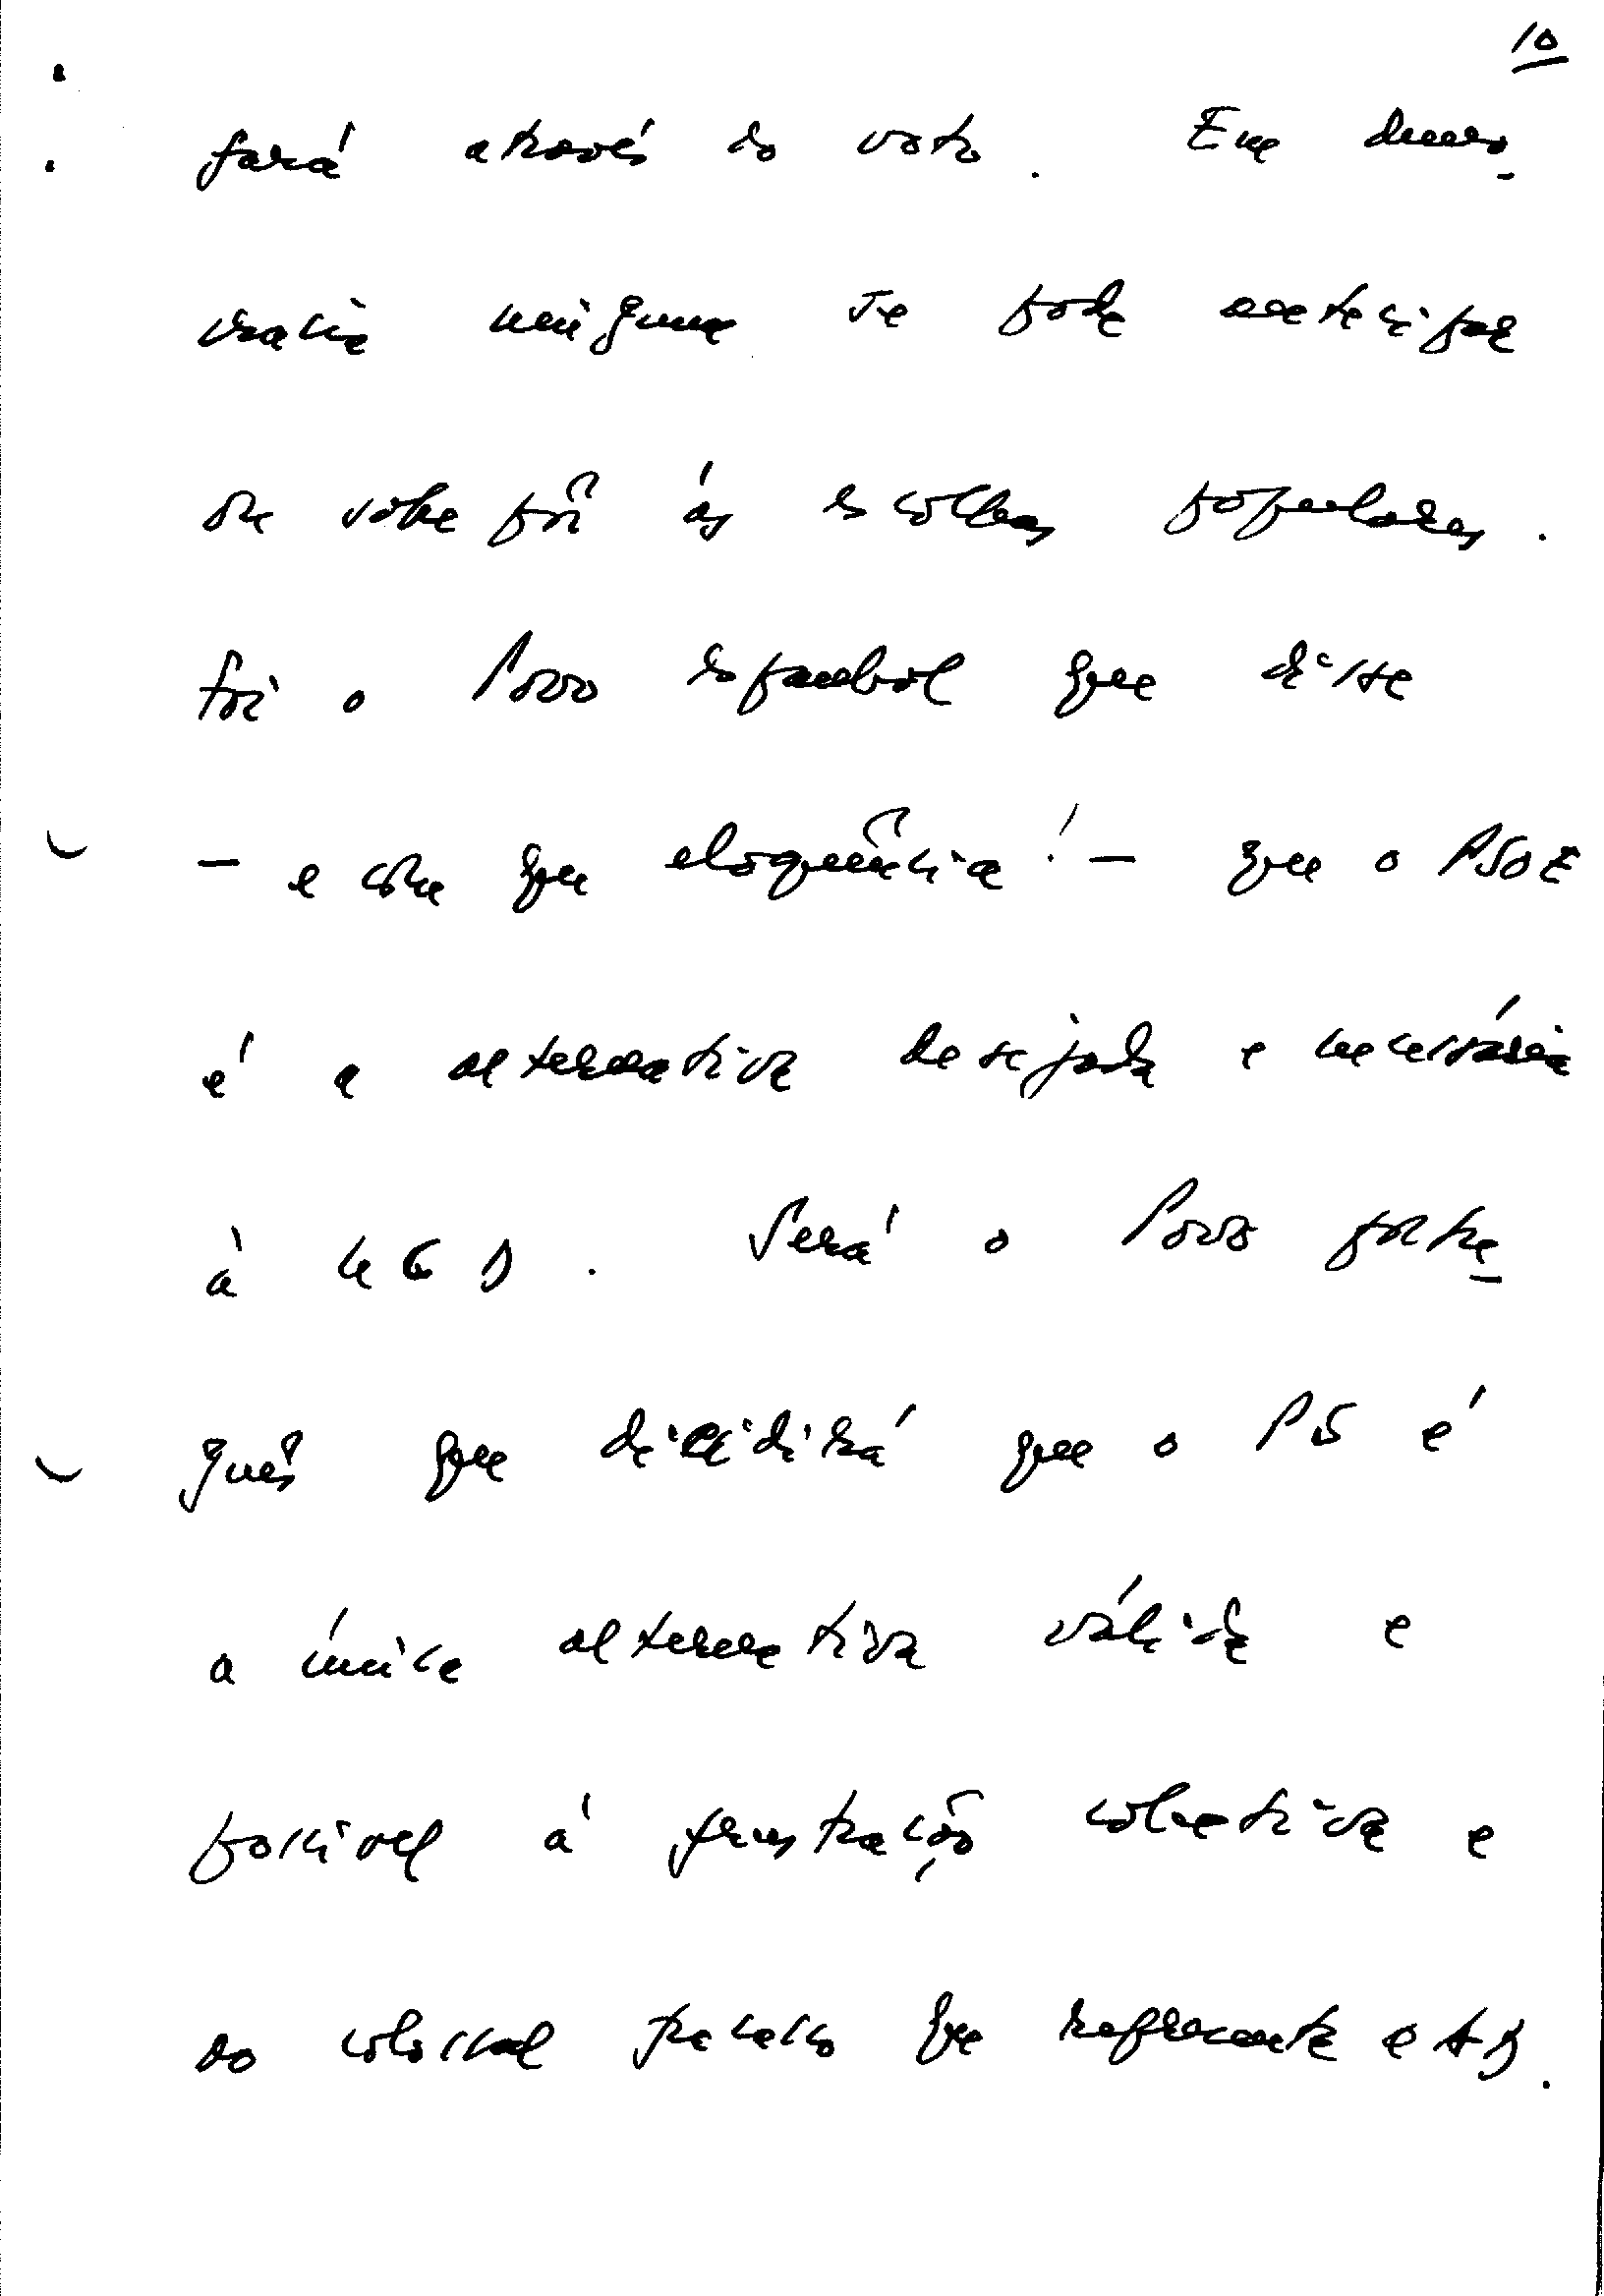 10
fará através do voto. Em demo-
cracia ninguém se pode antecipar
ou sobrepôr às escolhas populares.
Foi o Povo espanhol que disse
— e com que eloquência! — que o PSOE
é a alternativa desejada e necessária
à UCD. Será o Povo portu-
guês que decidirá que o PS é
a única alternativa válida e
possível à frustração colectiva e
ao colossal fracasso que representa a AD.